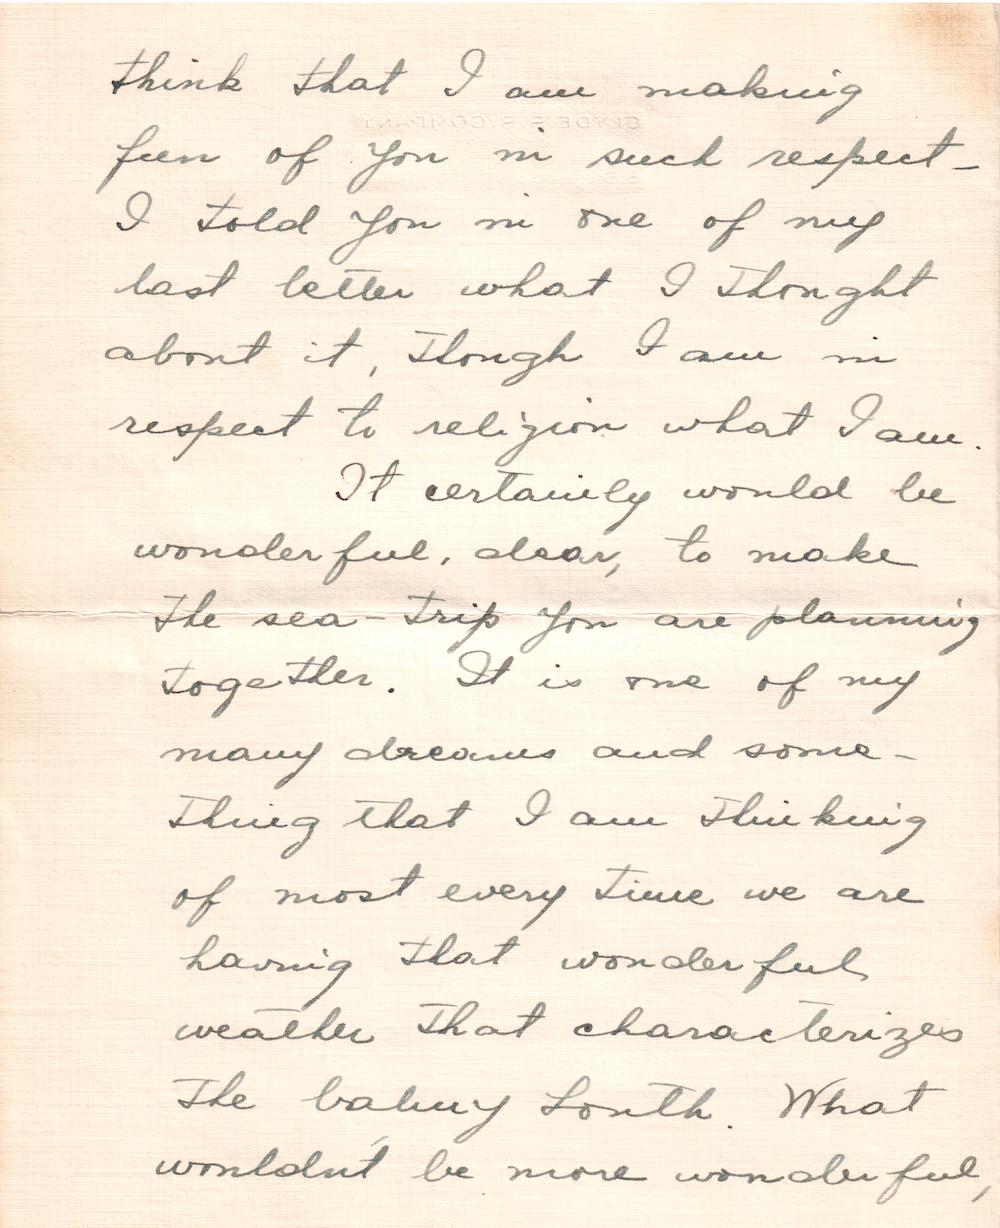 think that I am making
fun of you in such respect -
I told you in one of my
last letter what I thought
about it, though I am in
respect to religion what I am.
It certainly would be
wonderful, dear, to make
the sea - trip you are planning
together. It is one of my
many dreams and some -
thing that I am thinking
of most every time we are
having that wonderful
weather that characterizes
the balmy South. What
wouldnt be more wonderful,